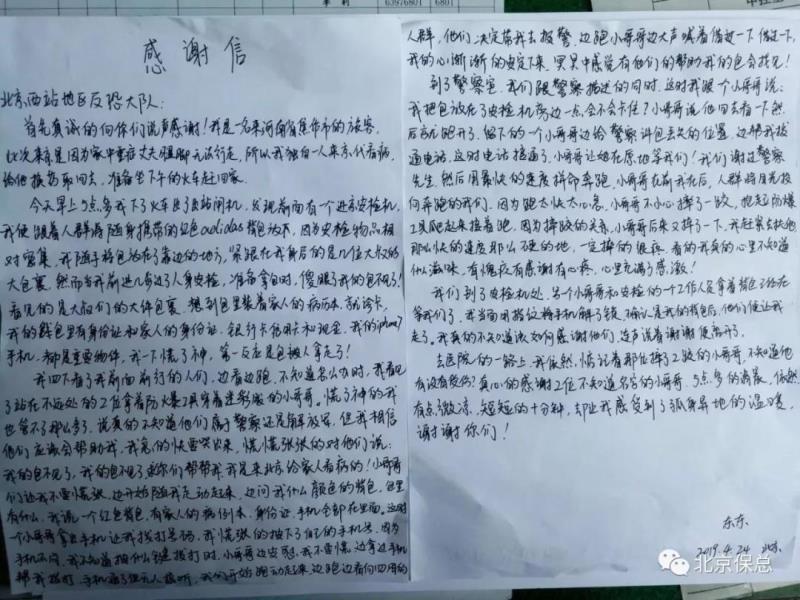 李利
63976801
6801
感谢信
北京西站地区反恐大队：
首先真诚的向你们说声感谢！我是一名来河南省焦作市的旅客，
此次来京是因为家中重症丈夫腿脚无法行走，所以我独自一人来京代看病，
给他换药取回去，准备坐下午的火车赶回家。
今天早上5点多我下了火车出了铁站闸机，发现前面有一个进京安检机，
我便跟着人群将随身携带的红色adidas背包放下，因为安检物品相
对密集，我随手将包放在了旁边的地方，紧跟在我身后的是几位大叔的
大包裹，然而当我前进几步过了人身安检，准备拿包时，傻眼了我的包不见了！
看见的是大叔们的大件包裹，想到包里装着家人的病历本、就诊卡，
我的钱包里有身份证和家人的身份证，银行卡信用卡和现金，我的iphone7
手机，都是重要物件，我一下慌了神，第一反应是包被人拿走了！
我四下看了我前面前行的人们，边看边跑，不知道怎么办时，我看见
了站在不远处的2位拿着防火爆具穿着迷彩服的小哥哥。慌了神的我
也管不了那么多了，说真的不知道他们属于警察还是解放军，但我相信
他们应该会帮助我，我急的快要哭出来，慌慌张张的对他们说：
我的包不见了，我的包不见了求你们帮帮我，我是来北京给家人看病的！小哥哥
们让我不要慌张，边开始随我走动起来，边问我什么颜色的背包，包里
有什么，我说一个红色背包，有家人的病例本、身份证、手机全部在里面。这时
一个小哥哥拿出手机让我拨打号码，我慌张的按下了自己的手机号，因为
手机不同，我不知道按什么键拨打时，小哥哥边安慰我不要慌，边拿过手机
帮我拨打，手机通了但无人接听，我们开始跑动起来，边跑边看向四周的
人群，他们决定带我去报警，边跑小哥哥边大声喊着借过一下借过一下，
我的心渐渐的安定下来，冥冥中感觉有他们的帮助我的包会找见！
到了警察室，我们跟警察描述的同时，这时我跟个小哥哥说：
我把包放在了安检机旁边一点，会不会卡住？小哥哥说他回去看一下，然
后就跑开了，留下的一个小哥哥边给警察讲包丢失的位置，边帮我拨
通电话，这时电话接通了，小哥哥让她在原地等我们！我们谢过警察
先生，然后用最快的速度拼命奔跑，小哥哥在前我在后，人群将目光投
向奔跑的我们，因为跑太快太心急，小哥哥不小心摔了一跤，抱起防爆
工具爬起来接着跑，因为摔跤的关系，小哥哥后来又摔了一下，我赶紧去扶他
那么快的速度那么硬的地，一定摔的很疼，看的我真的心里不知道
什么滋味，有愧疚有感谢有心疼，心里充满了感激！
我们到了安检机处，另一个小哥哥和安检的一个工作人员拿着背包已经在
等我们了，我当面用指纹将手机解了锁，确认是我的背包后，他们便让我
走了。我真的不知道该如何感谢他们，连声说着谢谢便离开了。
去医院的一路上，我依然，惦记着那位摔了2跤的小哥哥，不知道他
有没有受伤？真心的感谢2位不知道名字的小哥哥，5点多的清晨，依然
有点微凉，短短的十分钟，却让我感受到了孤身异地的温暖，
谢谢你们！
东东
2019.4.24 北京
北京保总